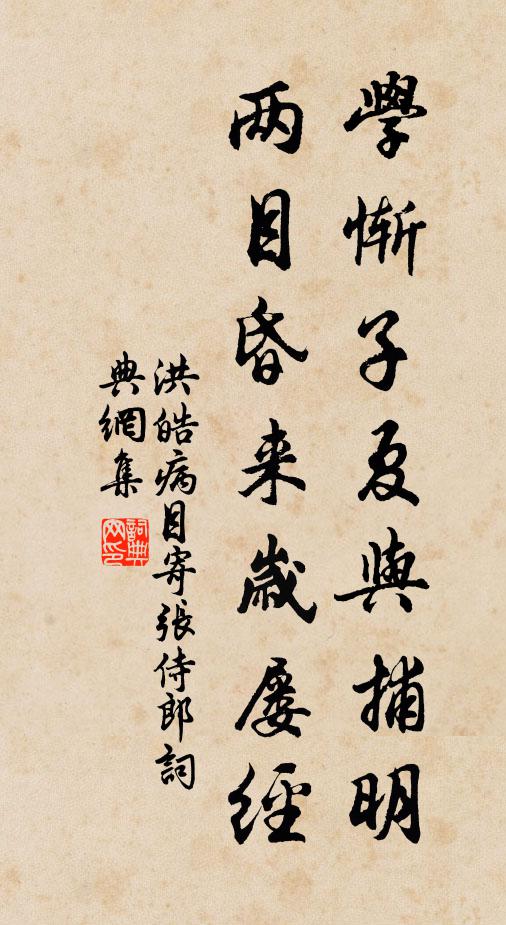 學慚子夏與捕明
两目昏来歲屡經
洪皓病目寄張侍郎詞
典網集
詞典网印